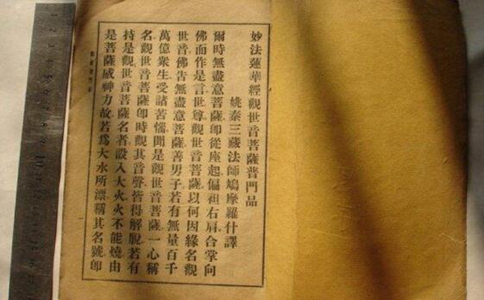 妙法蓮華經觀世音菩薩普門品
姚秦三藏法師鳩摩羅什譯
爾時無盡意菩薩即從座起偏袒右肩合掌向
佛而作是言世尊觀世音菩薩以何因緣名觀
世音佛告無盡意菩薩善男子若有無量百千
萬億衆生受諸苦惱聞是觀世音菩薩一心稱
名觀世音菩薩即時觀其音聲皆得解脫若有
持是觀世音菩薩名者設入大火火不能燒由
是菩薩威神力故若爲大水所漂稱其名號即